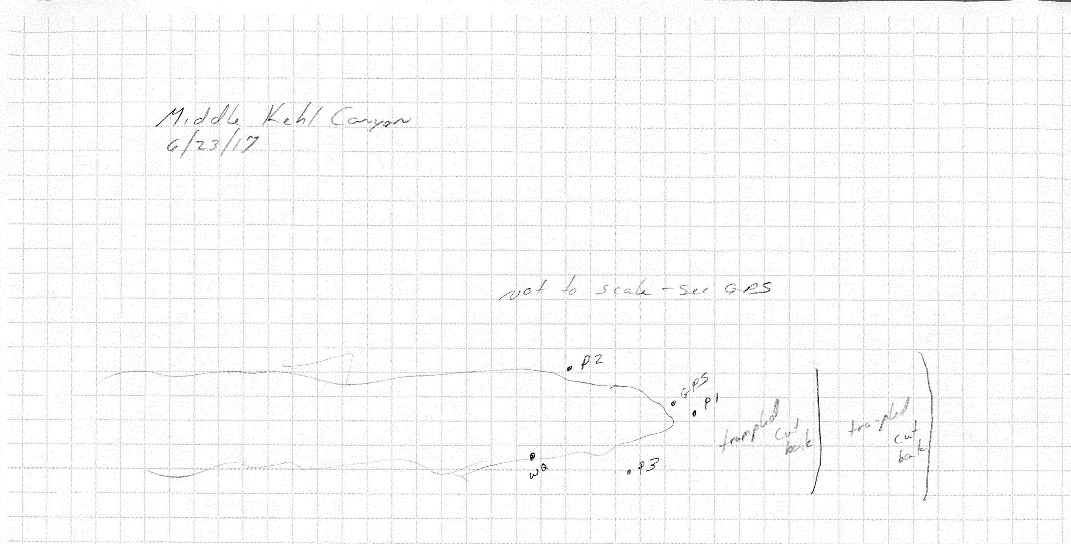 Middle Kehl Canyon
6/23/17
not to scale - see GPS
P2
GPS
P1
trampled
cut
bank
trampled
cut
bank
WQ
P3